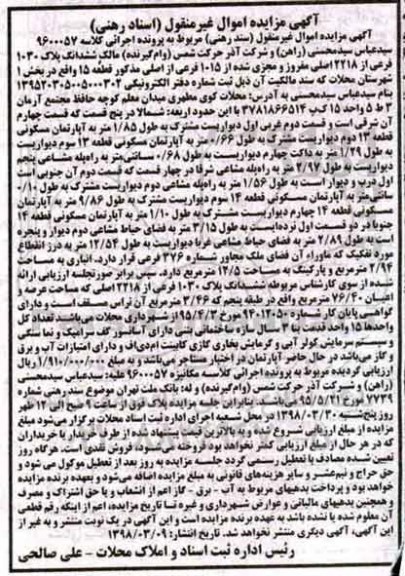 آگهی مزایده اموال غیرمنقول (اسناد رهنی)
آگهی مزایده اموال غیرمنقول (سند رهنی) مربوط به پرونده اجرائی کلاسه ۹۶۰۰۰۵۷
سیدعباس سیدمحسنی (راهن) و شرکت آذر حرکت شمس (وام‌گیرنده) مالک ششدانگ پلاک ۱۰۳۰
فرعی از ۲۲۱۸ اصلی مفروز و مجزی شده از ۱۰۱۵ فرعی از اصلی مذکور قطعه ۱۵ واقع در بخش ۱
شهرستان محلات که سند مالکیت آن ذیل ثبت شماره دفتر الکترونیکی ۱۳۹۵۲۰۳۰۵۰۰۵۰۰۰۳۰۲
بنام سیدعباس سیدمحسنی به آدرس: محلات کوی مطهری میدان معلم کوچه حافظ مجتمع آرمان
ط ۵ واحد ۱۵ ک.پ ۳۷۸۱۸۶۶۵۱۴ با این حدود اربعه: شمالا در پنج قسمت که قسمت چهارم
آن شرقی است و قسمت دوم غربی اول دیواریست مشترک به طول ۱/۸۵ متر به آپارتمان مسکونی
قطعه ۱۳ دوم دیواریست مشترک به طول ۰/۶۶ متر به آپارتمان مسکونی قطعه ۱۳ سوم دیواریست
به طول ۱/۲۹ متر به داکت چهارم دیواریست به طول ۰/۶۸ سانتی‌متر به راه‌پله مشاعی پنجم
دیواریست به طول ۲/۹۷ متر به راه‌پله مشاعی شرقا در چهار قسمت که قسمت دوم آن جنوبی است
اول درب و دیوار است به طول ۱/۵۶ متر به راه‌پله مشاعی دوم دیواریست مشترک به طول ۰/۱۰
سانتی‌متر به آپارتمان مسکونی قطعه ۱۴ سوم دیواریست مشترک به طول ۹/۸۶ متر به آپارتمان
مسکونی قطعه ۱۴ چهارم دیواریست مشترک به طول ۱/۱۰ متر به آپارتمان مسکونی قطعه ۱۴
جنوبا در دو قسمت اول نرده‌ایست به طول ۳/۱۵ متر به فضای حیاط مشاعی دوم دیوار و پنجره
است به طول ۲/۸۹ متر به فضای حیاط مشاعی غربا دیواریست به طول ۱۲/۵۴ متر به درز انقطاع
مورد تفکیک که ماوراء آن فضای ملک مجاور شماره ۳۷۶ فرعی قرار دارد. انباری به مساحت
۲/۹۴ مترمربع و پارکینگ به مساحت ۱۲/۵ مترمربع دارد. سپس برابر صورتجلسه ارزیابی ارائه
شده از سوی کارشناس مربوطه ششدانگ پلاک ۱۰۳۰ فرعی از ۲۲۱۸ اصلی که مساحت عرصه و
اعیان ۷۶/۴۰ مترمربع واقع در طبقه پنجم که ۲/۴۶ مترمربع آن تراس مسقف است و دارای
گواهی پایان کار شماره ۹۴۰۱۲۰۵۰ مورخ ۹۵/۴/۳ از شهرداری محلات می‌باشد تعداد کل
واحدها ۱۵ واحد قدمت بنا ۳ سال سازه ساختمانی بتنی دارای آسانسور کف سرامیک و نما سنگی
و سیستم سرمایش کولر آبی و گرمایش بخاری گازی کابینت ام‌دی‌اف و دارای امتیازات آب و برق
و گاز می‌باشد در حال حاضر آپارتمان در اختیار مستأجر می‌باشد و به مبلغ ۱/۹۱۰/۰۰۰/۰۰۰ ریال
ارزیابی گردیده مربوط به پرونده اجرائی کلاسه مکانیزه ۹۶۰۰۰۵۷ علیه: سیدعباس سیدمحسنی
(راهن) و شرکت آذر حرکت شمس (وام‌گیرنده) و له: بانک ملت تهران موضوع سند رهنی شماره
۷۷۳۹ مورخ ۹۵/۵/۲۱ می‌باشد. بنابراین جلسه مزایده پلاک فوق از ساعت ۹ صبح الی ۱۲ ظهر
روز پنج‌شنبه ۱۳۹۸/۰۳/۳۰ در محل شعبه اجرای اداره ثبت اسناد محلات برگزار می‌شود مبلغ
مزایده از مبلغ ارزیابی شروع شده و به بالاترین قیمت پیشنهاد شده از طرف خریدار یا خریداران
که در هر حال از مبلغ ارزیابی کمتر نخواهد بود فروخته می‌شود، فروش نقدی است. هرگاه روز
تعیین شده مصادف با تعطیل رسمی گردد جلسه مزایده به روز بعد از تعطیل موکول می شود و
حق حراج و نیم‌عشر و سایر هزینه‌های قانونی به مبلغ مزایده اضافه می‌شود و بعهده برنده مزایده
خواهد بود و پرداخت بدهیهای مربوط به آب - برق - گاز اعم از انشعاب و یا حق اشتراک و مصرف
و همچنین بدهیهای مالیاتی و عوارض شهرداری و غیره تا تاریخ مزایده، اعم از اینکه رقم قطعی
آن معلوم شده یا نشده باشد به عهده برنده مزایده است و این آگهی در یک نوبت منتشر و به غیر از
این آگهی، آگهی دیگری منتشر نخواهد شد. تاریخ انتشار: ۱۳۹۸/۰۳/۰۹
رئیس اداره ثبت اسناد و املاک محلات - علی صالحی